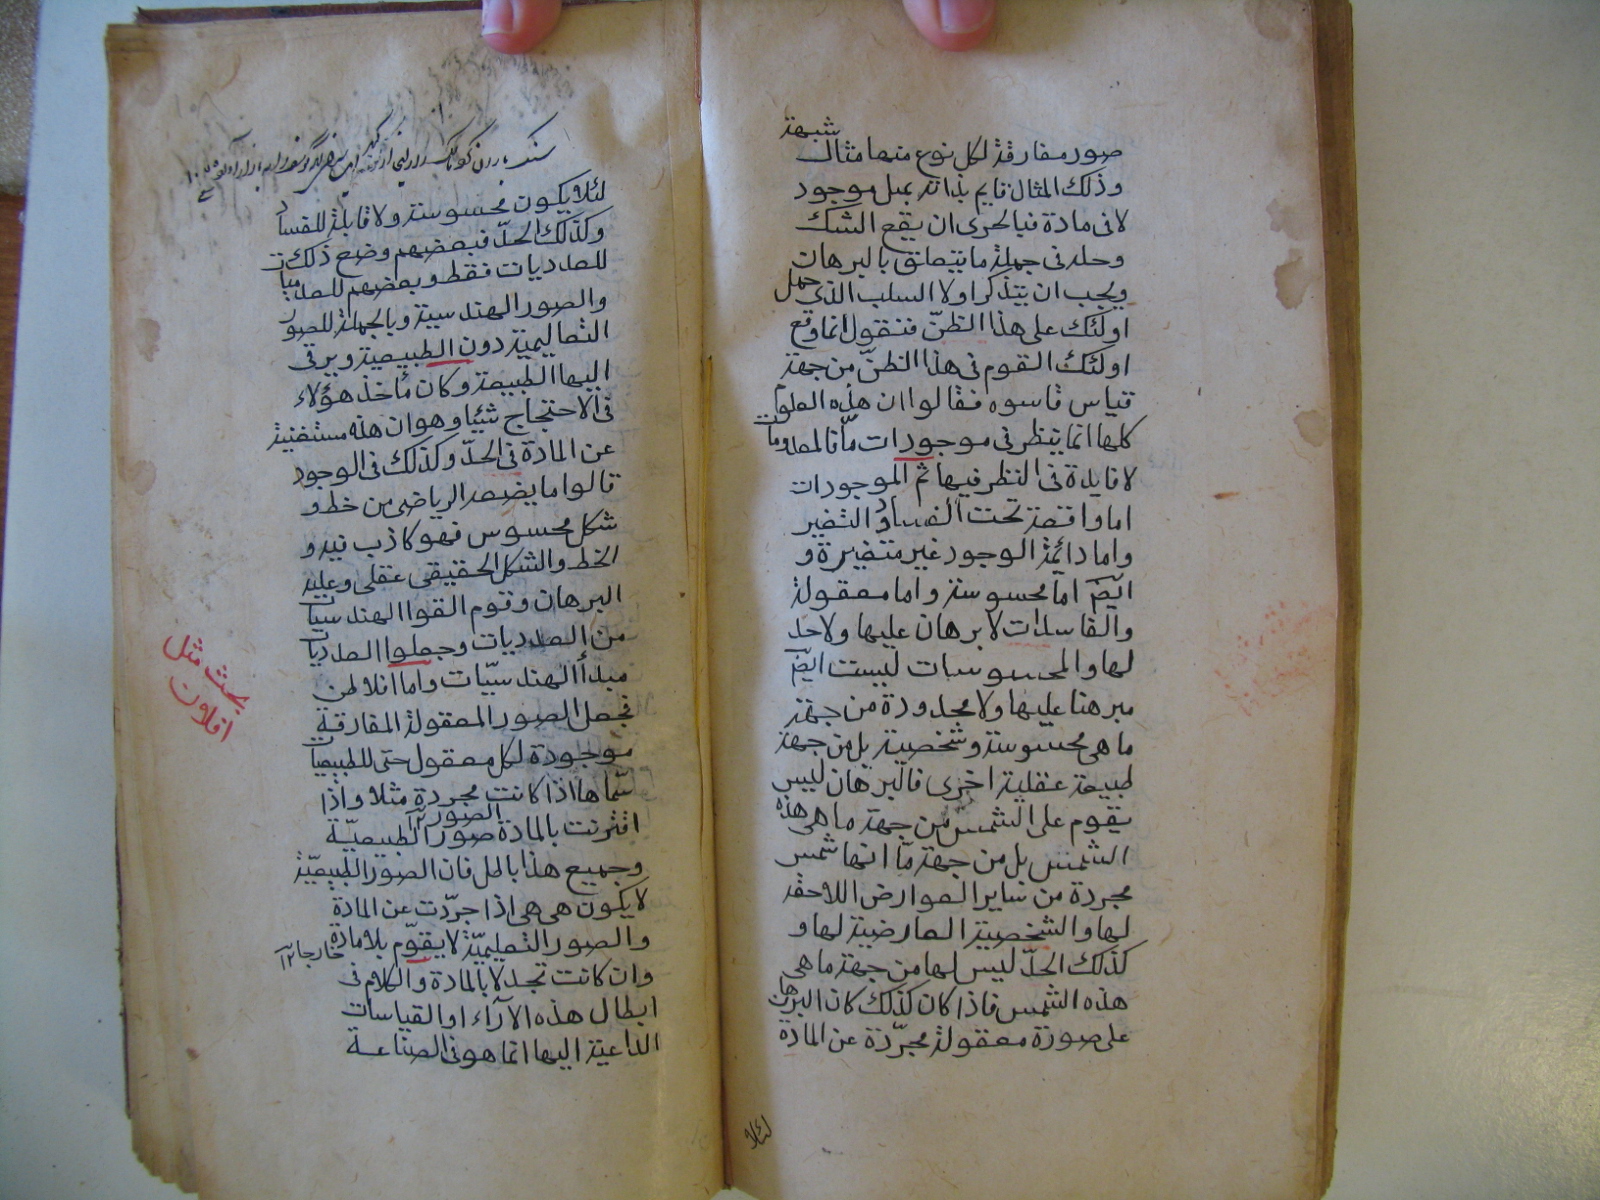 شبهة
صور مفارقة لكل نوع منها مثال
وذلك المثال قايم بذاته بمل موجود
لا فى مادة فبالحرى ان يقع الشك
وحله فى جملة ما يتعلق بالبرهان
ويجب ان يتذكر اولا السلب الذى حمل
اولئك على هذا الظنّ فنقول انما وقع
اولئك القوم فى هذا الظنّ من جهة
قياس قاسوه فقالوا ان هذه العلوم
كلها انما ينظر فى موجودات مّا فالمعدومات
لا فايدة فى النظر فيها ثم الموجودات
اما واقعة تحت الفساد و التغير
واما دائمة الوجود غير متغيرة و
ايضّ اما محسوسة واما معقولة
والفاسدات لا برهان عليها ولا حد
لها والمحسوسات ليست ايضّ
مبرهنا عليها ولا محدودة من جهة
ما هى محسوسة وشخصية بل من جهة
طبيعة عقلية اخرى فالبرهان ليس
يقوم على الشمس من جهة ما هى هذه
الشمس بل من جهة مّا انها شمس
مجردة من ساير العوارض اللاحقة
لها والشخصية العارضية لها و
كذلك الحدّ ليس لها من جهة ما هى
هذه الشمس فاذا كان كذلك كان البرهان
على صورة معقولة مجرّدة عن المادة
لئلا
لئلا يكون محسوسة ولا قابلة للفساد
وكذلك الحدّ فبعضهم وضع ذلك
للعدديات فقط وبعضهم للعدديات
والصور الهندسية وبالجملة للصور
التعاليمية دون الطبيعية ويرقى
اليها الطبيعة وكان مأخذ هؤلاء
فى الاحتجاج شيئا وهو ان هذه مستغنية
عن المادة فى الحدّ وكذلك فى الوجود
قالوا ما يضعه الرياضى من خط و
شكل محسوس فهو كاذب فيه و
الخط والشكل الحقيقى عقلى وعليه
البرهان وقوم القوا الهندسيات
من العدديات وجعلوا العدديات
مبدأ الهندسيّات واما افلاطن
فجعل الصور المعقولة المفارقة
موجودة لكل معقول حتى للطبيعيات
سمّاها اذا كانت مجردة مثلا واذا
اقترنت بالمادة صورا الصور الطبيعيّة
وجميع هذا باطل فان الصور الطبيعيّة
لا يكون هى هى اذا جرّدت عن المادة
والصور التعليميّة لا يقوّم بلا مادة خارجا ١٢
وان كانت تجد لا بالمادة والكلام فى
ابطال هذه الآراء او القياسات
الداعية اليها انما هو فى الصناعة
بحث مثل
افلاون